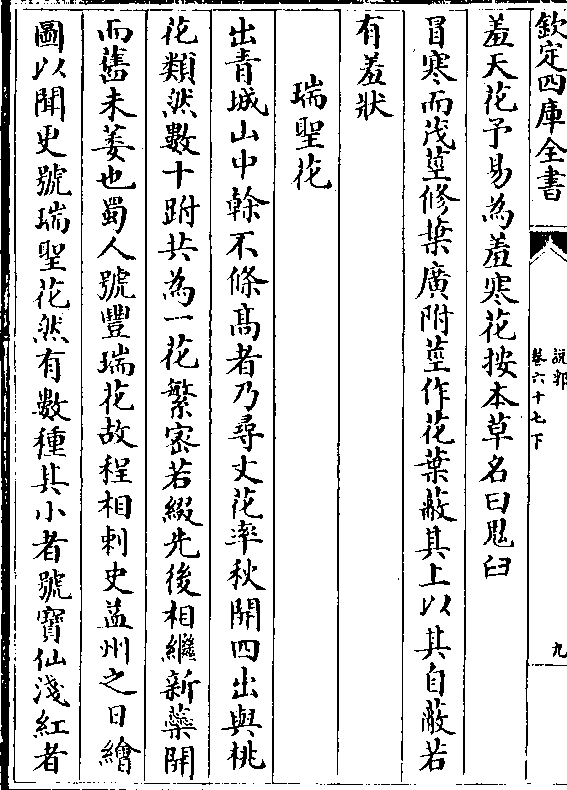 欽定四庫全書
說郛
卷六十七下
九
羞天花予易為羞寒花按本草名曰鬼臼
冒寒而茂莖修葉廣附莖作花葉蔽其上以其自蔽若
有羞狀
瑞聖花
出青城山中榦不條髙者乃尋丈花率秋開四出與桃
花類然數十跗共為一花繁宻若綴先後相繼新蘂開
而舊未萎也蜀人號豐瑞花故程相刺史益州之日繪
圖以聞更號瑞聖花然有數種其小者號寳仙淺紅者